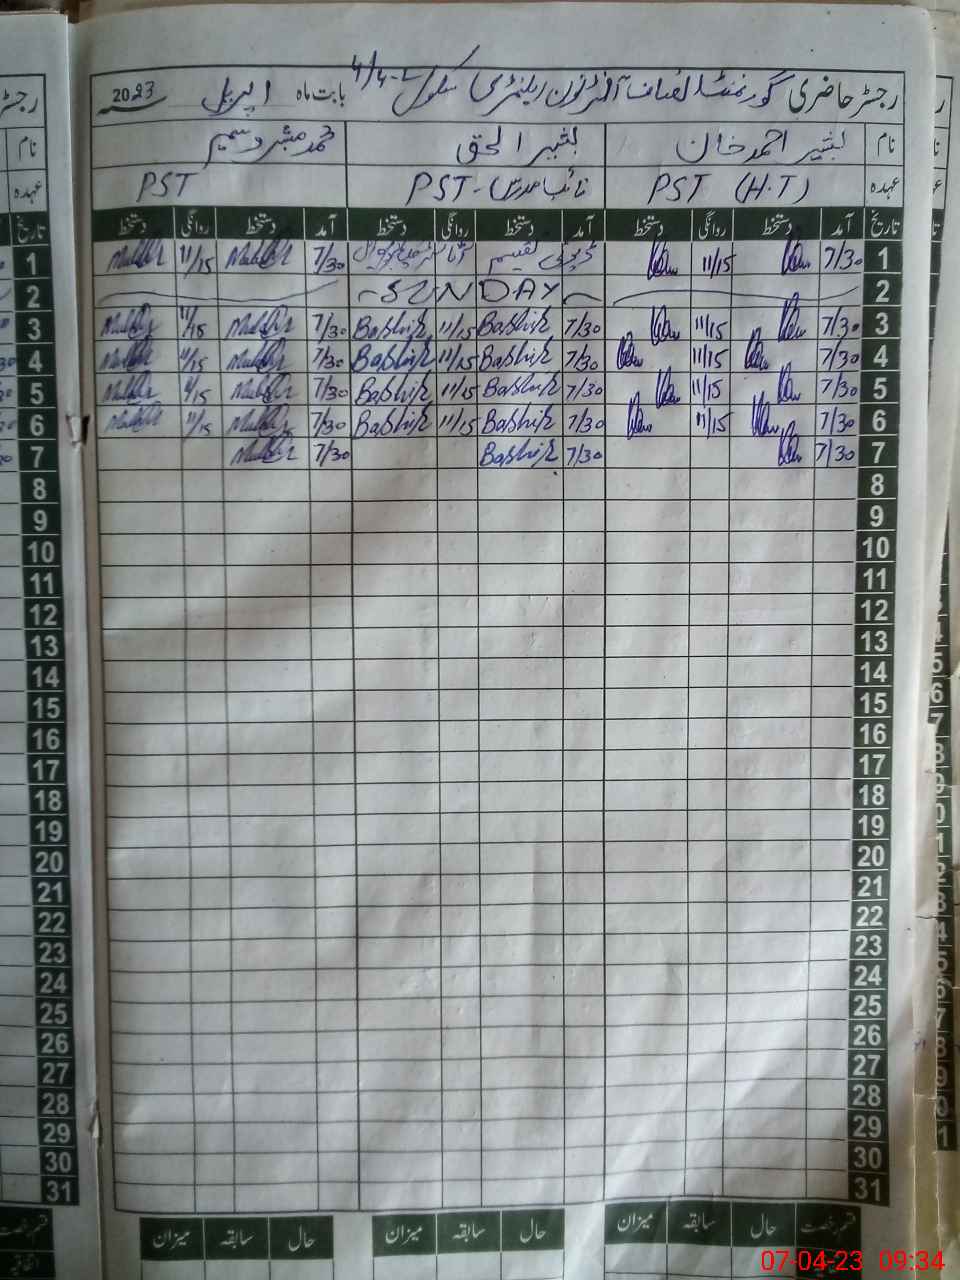 رجسٹر حاضری گورنمنٹ انصاف آفٹرنون ایلیمنٹری سکول 4/4-L بابت ماہ اپریل 2023
نام بشیر احمد خان بشیر الحق محمد مبشر وسیم
عہدہ PST (H.T) نائب مدرس - PST PST
تاریخ آمد دستخط روانگی دستخط آمد دستخط روانگی دستخط آمد دستخط روانگی دستخط
1 7/30 11/15 ڈیوٹی تقسیم 7/30 11/15
2 ~SUNDAY~
3 7/30 11/15 7/30 Bashir 11/15 Bashir 7/30 11/15
4 7/30 11/15 7/30 Bashir 11/15 Bashir 7/30 11/15
5 7/30 11/15 7/30 Bashir 11/15 Bashir 7/30 11/15
6 7/30 11/15 7/30 Bashir 11/15 Bashir 7/30 11/15
7 7/30 7/30 Bashir 7/30
8
9
10
11
12
13
14
15
16
17
18
19
20
21
22
23
24
25
26
27
28
29
30
31
قسم رخصت حال سابقہ میزان حال سابقہ میزان حال سابقہ میزان
07-04-23 09:34